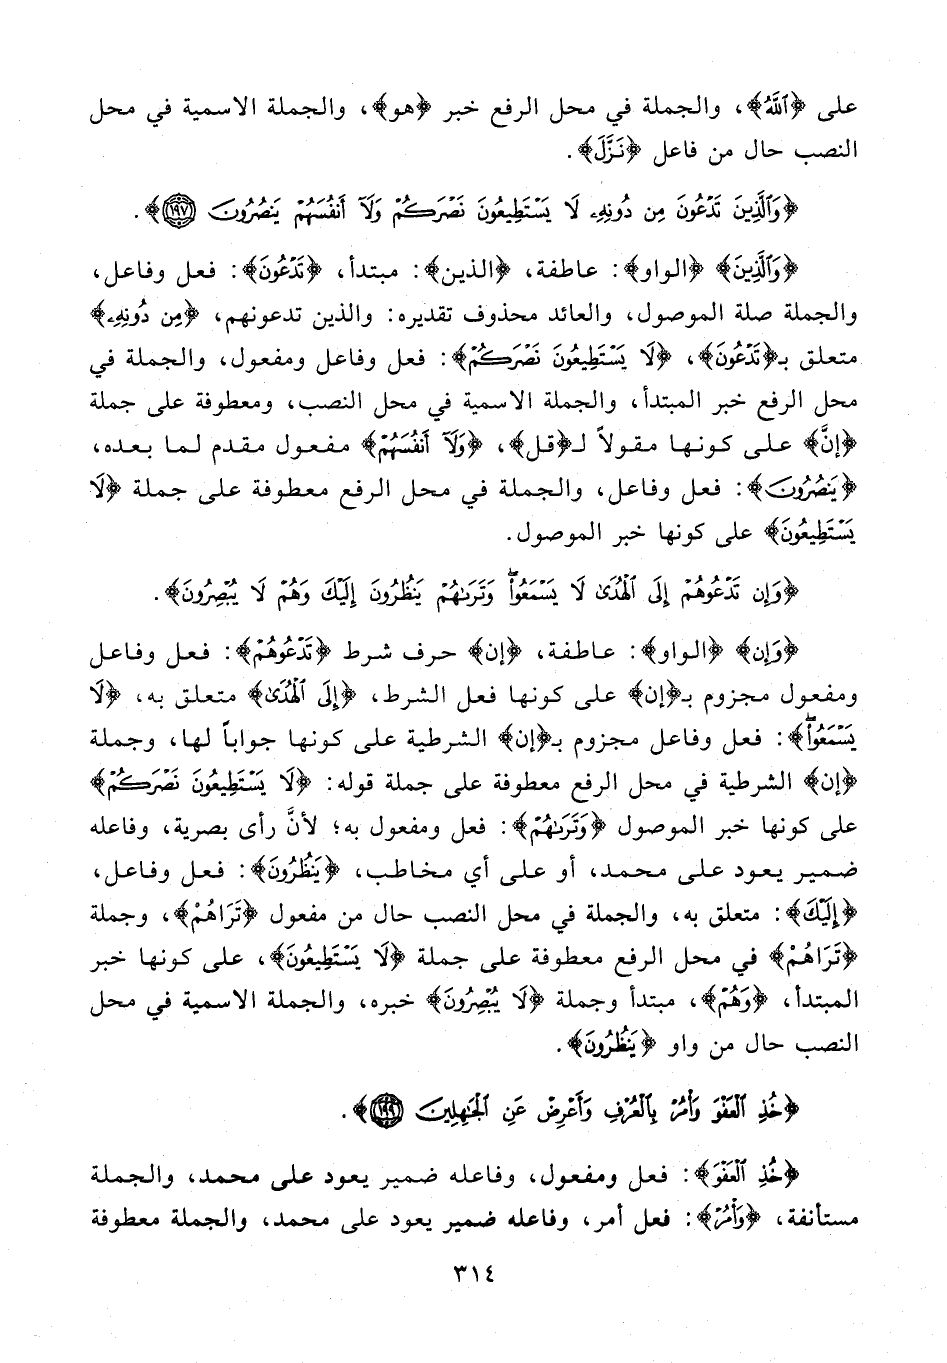 على ﴿ٱللَّهُ﴾، والجملة في محل الرفع خبر ﴿هو﴾، والجملة الاسمية في محل
النصب حال من فاعل ﴿نَزَّلَ﴾.
﴿وَٱلَّذِينَ تَدْعُونَ مِن دُونِهِۦ لَا يَسْتَطِيعُونَ نَصْرَكُمْ وَلَآ أَنفُسَهُمْ يَنصُرُونَ ١٩٧﴾.
﴿وَٱلَّذِينَ﴾ ﴿الواو﴾: عاطفة، ﴿الذين﴾: مبتدأ، ﴿تَدْعُونَ﴾: فعل وفاعل،
والجملة صلة الموصول، والعائد محذوف تقديره: والذين تدعونهم، ﴿مِن دُونِهِۦ﴾
متعلق بـ﴿تَدْعُونَ﴾، ﴿لَا يَسْتَطِيعُونَ نَصْرَكُمْ﴾: فعل وفاعل ومفعول، والجملة في
محل الرفع خبر المبتدأ، والجملة الاسمية في محل النصب، ومعطوفة على جملة
﴿إنَّ﴾ على كونها مقولاً لـ﴿قل﴾، ﴿وَلَآ أَنفُسَهُمْ﴾ مفعول مقدم لما بعده،
﴿يَنصُرُونَ﴾: فعل وفاعل، والجملة في محل الرفع معطوفة على جملة ﴿لَا
يَسْتَطِيعُونَ﴾ على كونها خبر الموصول.
﴿وَإِن تَدْعُوهُمْ إِلَى ٱلْهُدَىٰ لَا يَسْمَعُوا۟ ۖ وَتَرَىٰهُمْ يَنظُرُونَ إِلَيْكَ وَهُمْ لَا يُبْصِرُونَ﴾.
﴿وَإِن﴾ ﴿الواو﴾: عاطفة، ﴿إن﴾ حرف شرط ﴿تَدْعُوهُمْ﴾: فعل وفاعل
ومفعول مجزوم بـ﴿إن﴾ على كونها فعل الشرط، ﴿إِلَى ٱلْهُدَىٰ﴾ متعلق به، ﴿لَا
يَسْمَعُوا۟ ۖ﴾: فعل وفاعل مجزوم بـ﴿إن﴾ الشرطية على كونها جواباً لها، وجملة
﴿إن﴾ الشرطية في محل الرفع معطوفة على جملة قوله: ﴿لَا يَسْتَطِيعُونَ نَصْرَكُمْ﴾
على كونها خبر الموصول ﴿وَتَرَىٰهُمْ﴾: فعل ومفعول به؛ لأنَّ رأى بصرية، وفاعله
ضمير يعود على محمد، أو على أي مخاطب، ﴿يَنظُرُونَ﴾: فعل وفاعل،
﴿إِلَيْكَ﴾: متعلق به، والجملة في محل النصب حال من مفعول ﴿تَرَاهُمْ﴾، وجملة
﴿تَرَاهُمْ﴾ في محل الرفع معطوفة على جملة ﴿لَا يَسْتَطِيعُونَ﴾، على كونها خبر
المبتدأ، ﴿وَهُمْ﴾، مبتدأ وجملة ﴿لَا يُبْصِرُونَ﴾ خبره، والجملة الاسمية في محل
النصب حال من واو ﴿يَنظُرُونَ﴾.
﴿خُذِ ٱلْعَفْوَ وَأْمُرْ بِٱلْعُرْفِ وَأَعْرِضْ عَنِ ٱلْجَٰهِلِينَ ١٩٩﴾.
﴿خُذِ ٱلْعَفْوَ﴾: فعل ومفعول، وفاعله ضمير يعود على محمد، والجملة
مستأنفة، ﴿وَأْمُرْ﴾: فعل أمر، وفاعله ضمير يعود على محمد، والجملة معطوفة
٣١٤